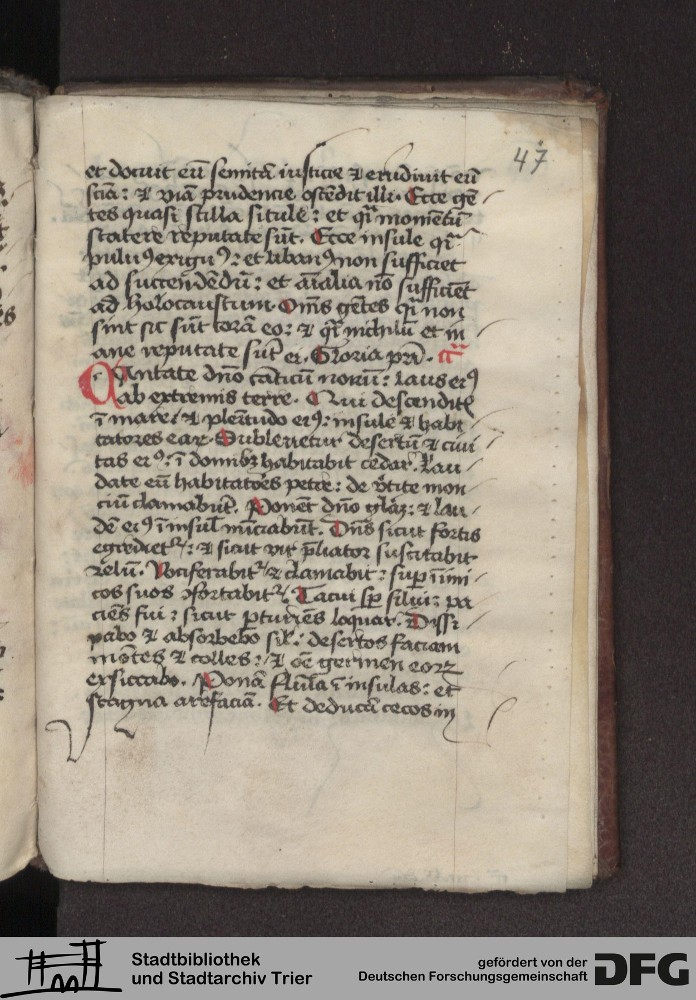 47
et docuit eū semitā iusticie ⁊ erudiuit eū
sciā: ⁊ viā prudencie ostēdit illi. Ecce gē
tes quasi stilla situle: et q̄i momētū
statere reputate sūt. Ecce insule q̄i
puluꝰ exiguꝰ: et libanꝰ non sufficiet
ad succendēdū: et aīalia nō sufficiēt
ad holocaustum. Om̄s gētes q̄i non
sint sic sūt corā eo: ⁊ q̄i nichilū et in
ane reputate sūt ei. Gloria pr̄i.
Cantate dn̄o cāticū nouū: laus eiꝰ
ab extremis terre. Qui descenditis
ī mare: ⁊ plenitudo eiꝰ: insule ⁊ habi
tatores eaꝝ. Subleuetur desertū ⁊ ciui
tas eiꝰ: ī domibꝫ habitabit cedar. Lau
date eū habitatōes petre: de v̄tice mon
ciū clamabūt. Ponēt dn̄o gl̄aꝫ: ⁊ lau
dē eiꝰ ī insul̄ nūciabūt. Dn̄s sicut fortis
egrediet᷑: ⁊ sicut vir p̄liator suscitabit
zelū. Vociferabit᷑ ⁊ clamabit: sup̄ inimi
cos suos ꝯfortabit᷑. Tacui sp̄ silui: pa
ciēs fui: sicut ꝑturiēs loquar. Dissi
pabo ⁊ absorbebo sil̄: desertos faciam
mōtes ⁊ colles: ⁊ oē germen eoꝝ
exsiccabo. Ponā flūīa ī insulas: et
stagna arefaciā. Et deducā cecos in
Stadtbibliothek
und Stadtarchiv Trier
gefördert von der
Deutschen Forschungsgemeinschaft
DFG